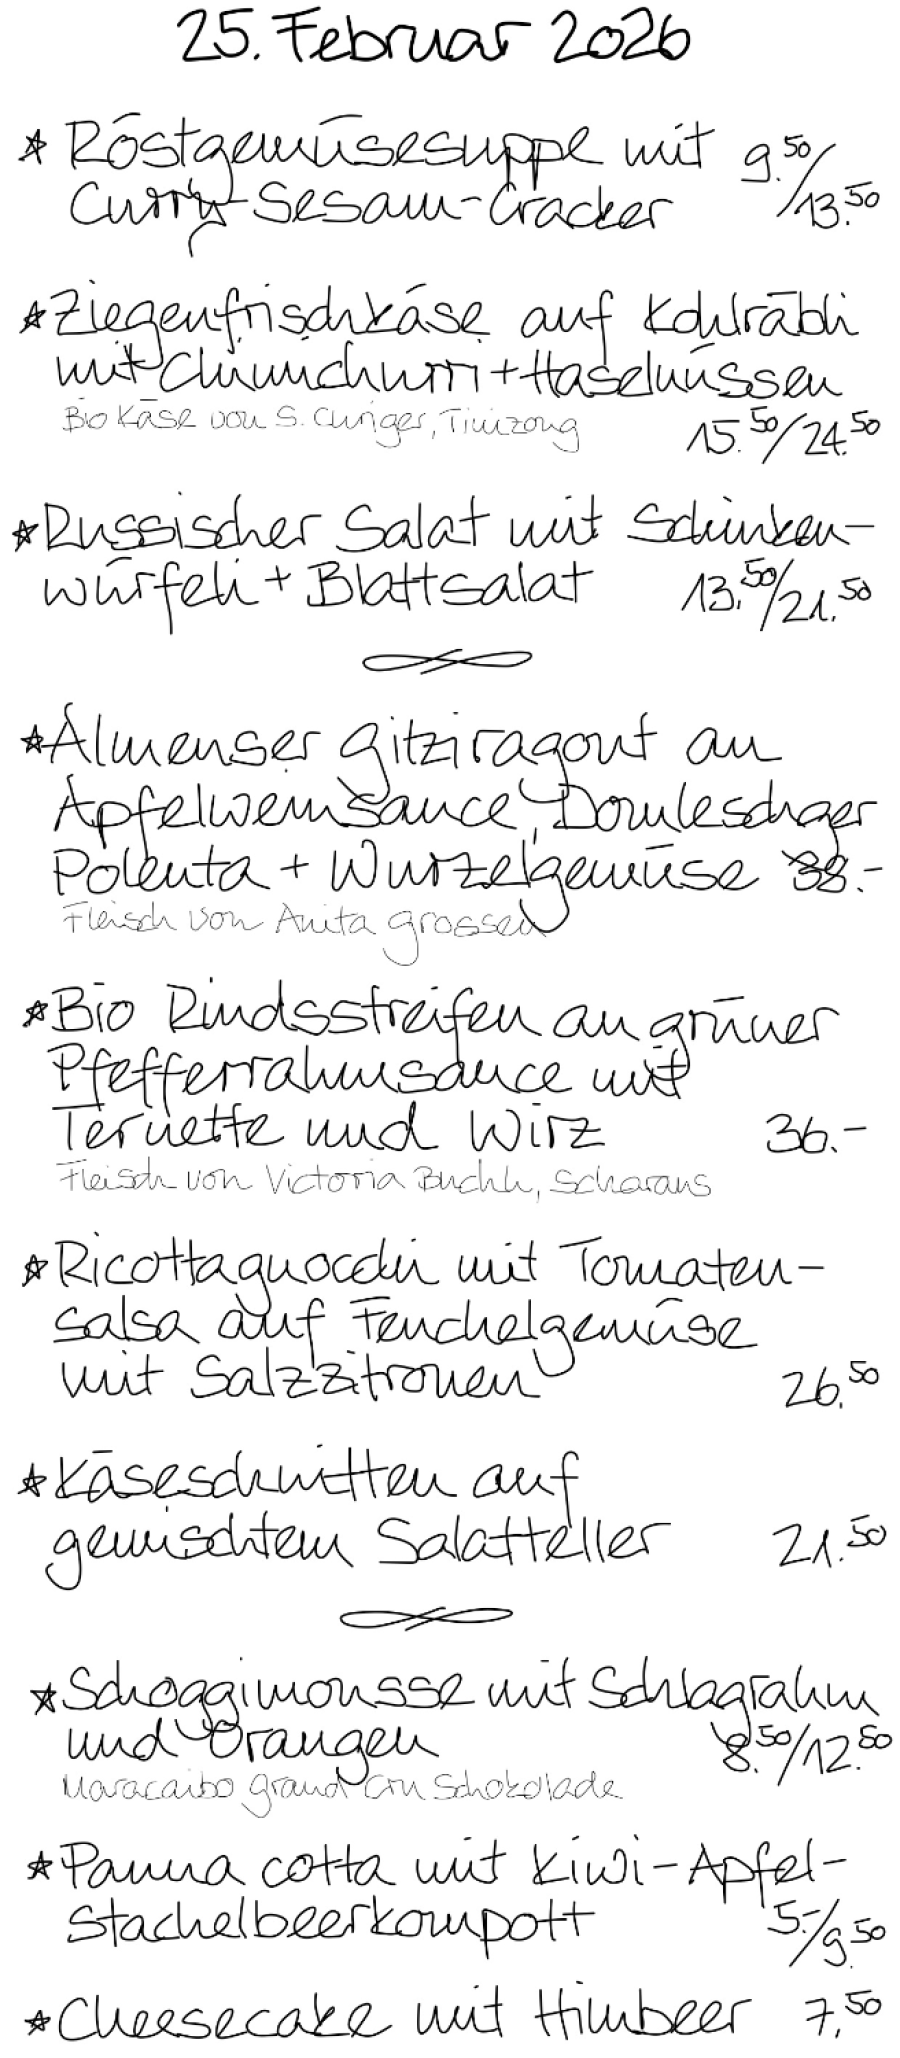 25. Februar 2026
* Röstgemüsesuppe mit 9.50/13.50
Curry-Sesam-Cracker
* Ziegenfrischkäse auf Kohlräbli
mit Chimichurri + Haselnüssen
Bio Käse von S. Curiger, Tinizong 15.50/24.50
* Russischer Salat mit Schinken-
würfeli + Blattsalat 13.50/21.50
* Almenser Gitziragout an
Apfelweinsauce, Domleschger
Polenta + Wurzelgemüse 38.-
Fleisch von Anita Grossen
* Bio Rindsstreifen an grüner
Pfefferrahmsauce mit
Ternette und Wirz 36.-
Fleisch von Victoria Buchli, Scharans
* Ricottagnocchi mit Tomaten-
salsa auf Fenchelgemüse
mit Salzzitronen 26.50
* Käseschnitten auf
gemischtem Salatteller 21.50
* Schoggimousse mit Schlagrahm
und Orangen 8.50/12.50
Maracaibo Grand Cru Schokolade
* Panna cotta mit Kiwi-Apfel-
Stachelbeerkompott 5.-/9.50
* Cheesecake mit Himbeer 7.50